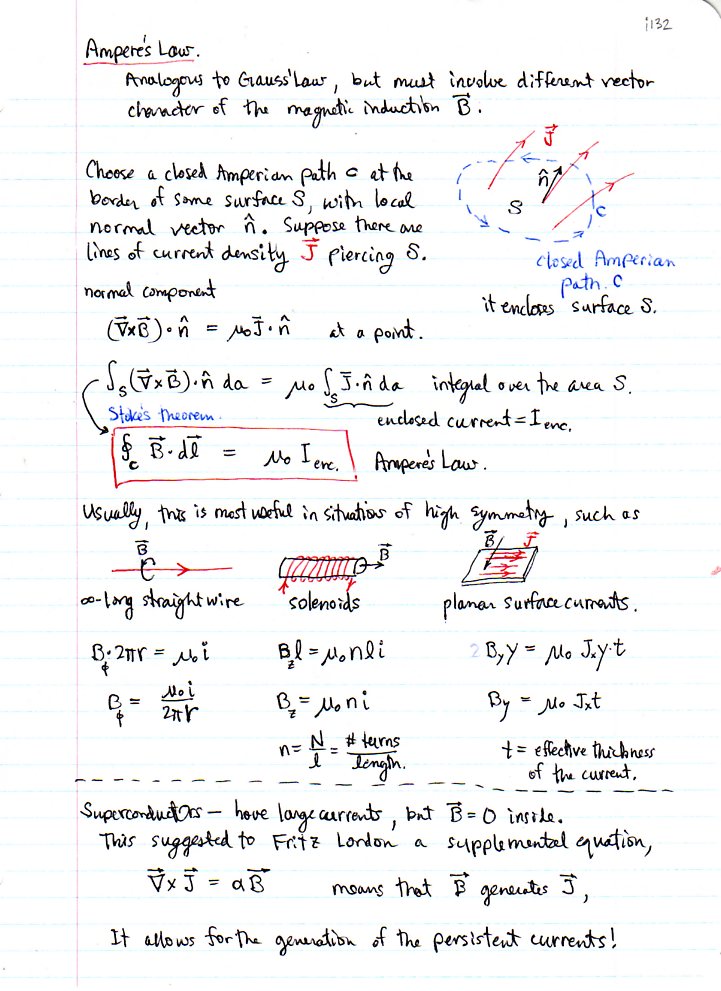 i132
Ampere's Law.
Analogous to Gauss' Law, but must involve different vector
character of the magnetic induction B⃗.
Choose a closed Amperian path C at the
border of some surface S, with local
normal vector n̂. Suppose there are
lines of current density J⃗ piercing S.
J⃗
n̂
S
C
closed Amperian
path C
it encloses surface S.
normal component
(∇⃗×B⃗)·n̂ = μ₀J⃗·n̂ at a point.
∫_S (∇⃗×B⃗)·n̂ da = μ₀ ∫_S J⃗·n̂ da integral over the area S.
Stoke's theorem.
enclosed current = I enc.
∮_C B⃗·dl⃗ = μ₀ I enc. Ampere's Law.
Usually, this is most useful in situations of high symmetry, such as
B⃗
B⃗
B⃗ J⃗
∞-long straight wire
solenoids
planar surface currents.
B_ϕ·2πr = μ₀i
B_z l = μ₀nli
2B_y y = μ₀ J_x y·t
B_ϕ = μ₀i / 2πr
B_z = μ₀ni
B_y = μ₀ J_x t
n = N/l = # turns / length.
t = effective thickness
of the current.
Superconductors – have large currents, but B⃗ = 0 inside.
This suggested to Fritz London a supplemental equation,
∇⃗×J⃗ = αB⃗ means that B⃗ generates J⃗,
It allows for the generation of the persistent currents!